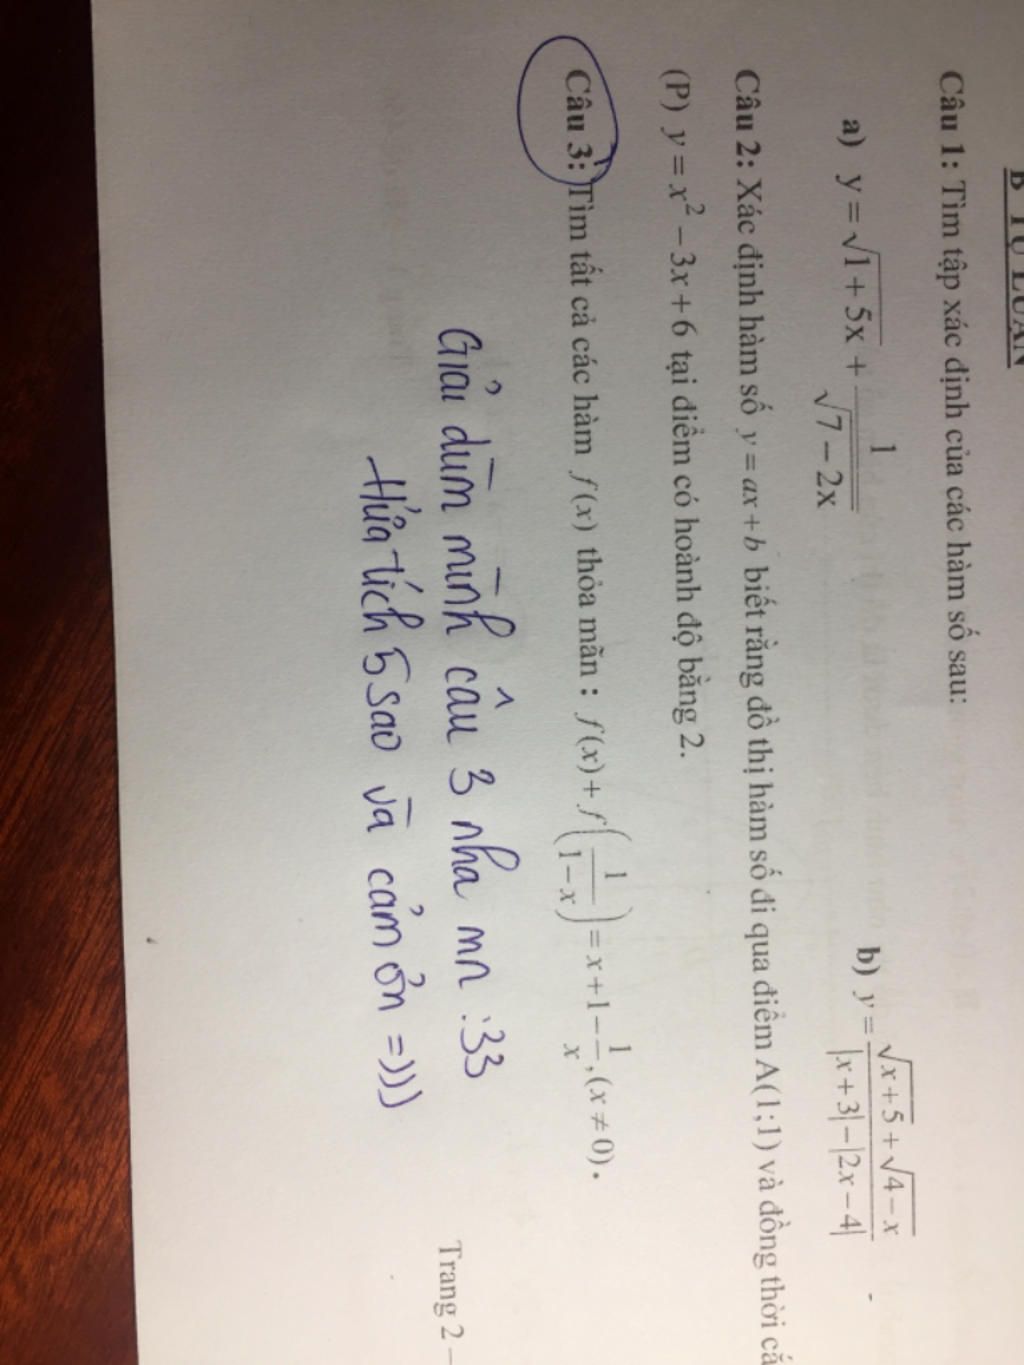 B TỰ LUẬN
Câu 1: Tìm tập xác định của các hàm số sau:
a) y = √(1 + 5x) + 1/√(7 − 2x) b) y = (√(x + 5) + √(4 − x))/(|x + 3| − |2x − 4|)
Câu 2: Xác định hàm số y = ax + b biết rằng đồ thị hàm số đi qua điểm A(1;1) và đồng thời
(P) y = x² − 3x + 6 tại điểm có hoành độ bằng 2.
Câu 3: Tìm tất cả các hàm f(x) thỏa mãn : f(x) + f(1/(1 − x)) = x + 1 − 1/x, (x ≠ 0).
Giải dùm mình câu 3 nha mn :33
Hứa tích 5 sao và cảm ơn =)))
Trang 2 –